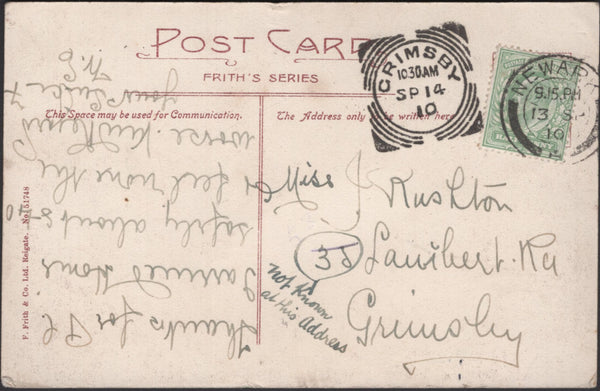 POST CARD
FRITH'S SERIES
This Space may be used for Communication.
The Address only to be written here
GRIMSBY
10.30AM
SP 14
10
NEWARK
9.15 PM
13 SP
10
Thanks for P.C
I arrived Home
safely about 8-40
& feel none the
worse. Kind Regards
Yours
Miss J Rushton
35 Lambert Rd
Grimsby
Not Known
at this Address
F. Frith & Co. Ltd. Reigate. No. 51748